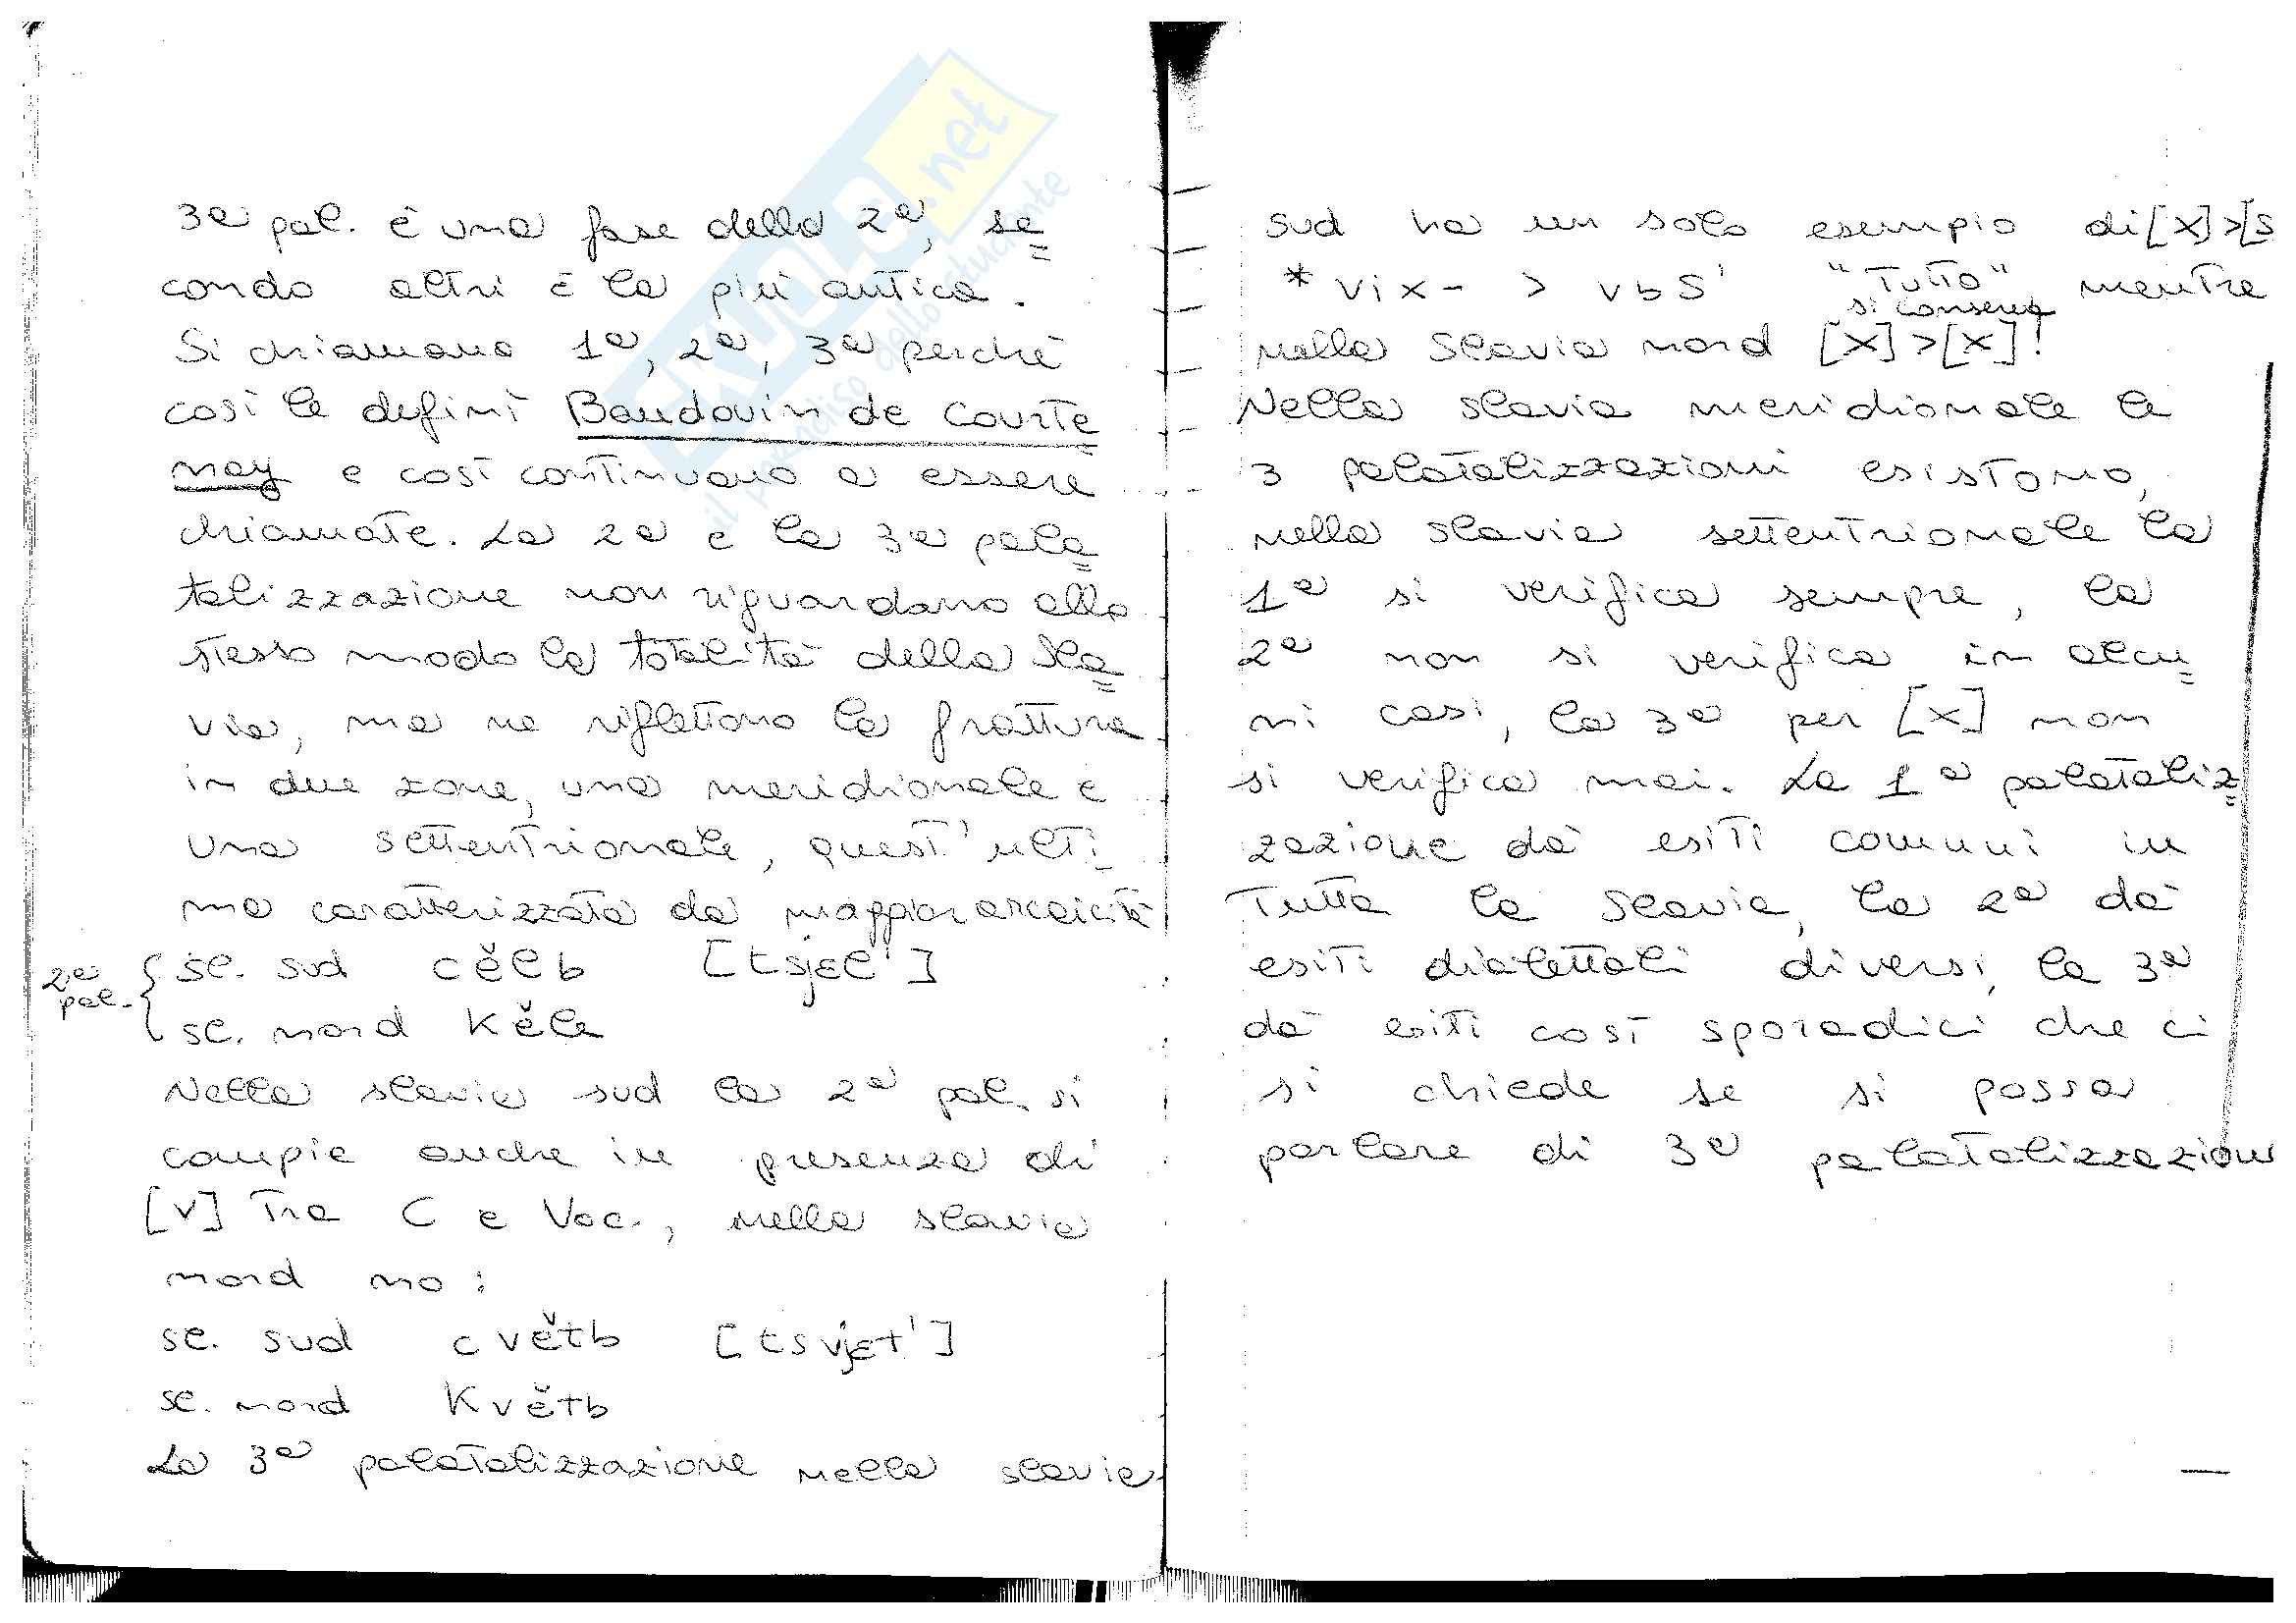 3ª pal. è una fase della 2ª, se=
condo altri è la più antica.
Si chiamano 1ª, 2ª, 3ª perché
così le definì Baudouin de Courte
nay e così continuano a essere
chiamate. La 2ª e la 3ª pala=
talizzazione non riguardano allo
stesso modo la totalità della Sla=
via, ma ne riflettono la frattura
in due zone, una meridionale e
una settentrionale, quest'ulti
ma caratterizzata da maggior arcaicità
2ª pal. { sl. sud cělь [tsjεl']
sl. nord kěl
Nella slavia sud la 2ª pal. si
compie anche in presenza di
[v] tra C e Voc., nella slavia
nord no:
sl. sud cvětь [tsvjεt']
sl. nord Květь
La 3ª palatalizzazione nella slavia
sud ha un solo esempio di [x]>[s
*vix- > vьs' "Tutto", mentre
si conserva
nella Slavia nord [x]>[x]!
Nella slavia meridionale le
3 palatalizzazioni esistono,
nella slavia settentrionale la
1ª si verifica sempre, la
2ª non si verifica in alcu=
ni casi, la 3ª per [x] non
si verifica mai. La 1ª palataliz=
zazione dà esiti comuni in
Tutta la Slavia, la 2ª dà
esiti dialettali diversi, la 3ª
dà esiti così sporadici che ci
si chiede se si possa
parlare di 3ª palatalizzazion
EKUOLO.net
il paradiso dello studente